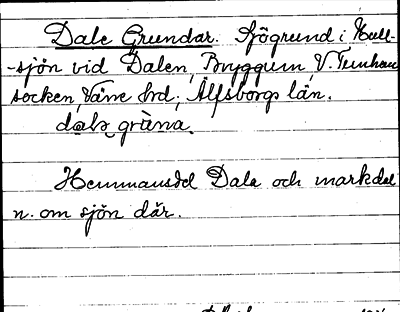 Dale Grundar. Sjögrund i Hull-
-sjön vid Dalen, Bryggum, V. Tunhem
socken, Väne hrd, Älfsborgs län.
dalə grùna.
Hemmansdel Dala och markdel
n. om sjön där.